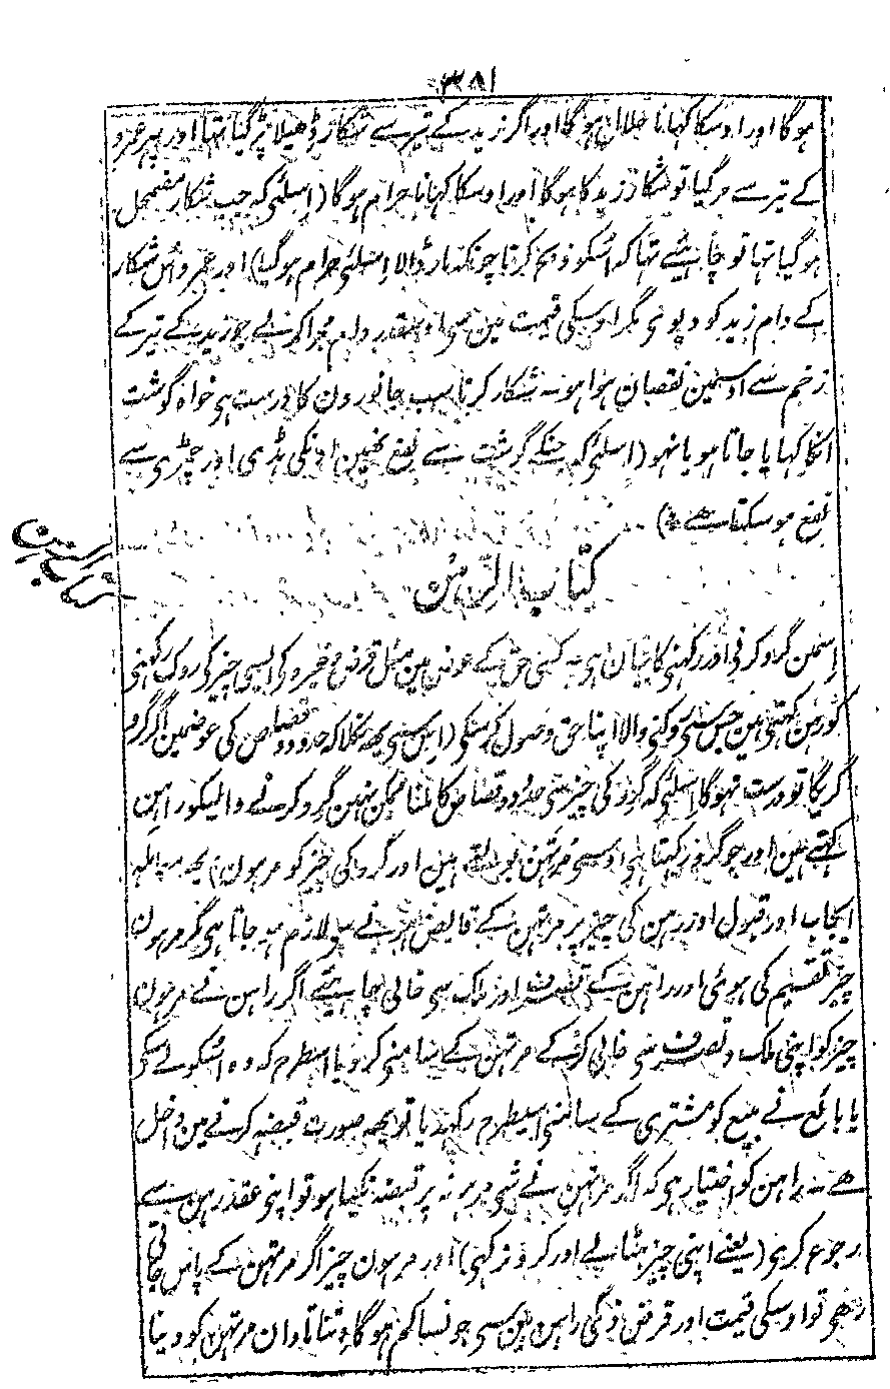 ٣٨١
ہوگا اور اوسکا کہانا حلال ہوگا اور اگر زید کے تیر سے شکار ڈھیلا پڑ گیا تہا اور پہر عمرو
کے تیر سے مر گیا تو شکار زید کا ہوگا اور اوسکا کہانا حرام ہوگا (اسلئی کہ جب شکار مضمحل
ہو گیا تہا تو چاہئیے تہا کہ اسکو ذبح کرتا چونکہ مار ڈالا اسلئی حرام ہو گیا) اور عمرو اس شکار
کے دام زید کو دیوی مگر اوسکی قیمت مین سی اوسقدر دام مجرا کرلے جو زید کے تیر کے
زخم سے اوسمین نقصان ہوا ہو ـہ شکار کرنا سب جانورون کا درست ہی خواہ گوشت
انکا کہایا جاتا ہو یا نہو (اسلئی کہ جنکے گوشت سے نفع نہین اونکی ہڈی اور چمڑی سے
نفع ہو سکتا ہے)
کتاب الرہن
کتاب الرہن
اسمین گرو کرنی اور رکہنی کا بیان ہی ـہ کسی حق کے عوض مین مثل قرض وغیرہ کی ایسی چیز کی روک رکہنی
کو رہن کہتی ہین جس سی روکنی والا اپنا حق وصول کر سکی (اس سی یہہ نکلا کہ حدود و قصاص کی عوضمین اگر گرو
کریگا تو درست نہوگا اسلئی کہ گرو کی چیز سی حدود و قصاص کا لینا ممکن نہین گرو کرنے والیکو راہن
کہتے ہین اور جو گرو رکہتا ہی اوسی مرتہن بولتے ہین اور گرو کی چیز کو مرہون) یہہ معاملہ
ایجاب اور قبول اور رہن کی چیز پر مرتہن کے قابض ہونے سے لازم ہو جاتا ہی مگر مرہون
چیز تقسیم کی ہوئی اور راہن کے تصرف اور ملک سی خالی چاہئیے اگر راہن نے مرہون
چیز کو اپنی ملک و تصرف سی خالی کرکے مرتہن کے سامنی کر دیا اسطرح کہ وہ اسکو لے سکے
یا بائع نے مبیع کو مشتری کے سامنی اسیطرح رکہدیا تو یہہ صورت قبضہ کرنے مین داخل
ھے ـہ راہن کو اختیار ہی کہ اگر مرتہن نے شی مرہونہ پر قبضہ نکیا ہو تو اپنی عقد رہن سے
رجوع کری (یعنے اپنی چیز ہٹا لے اور گرو نرکہی) اور مرہون چیز اگر مرتہن کے پاس جاتی
رہی تو اوسکی قیمت اور قرض ذمگی راہن مین سی جونسا کم ہوگا وتنا تاوان مرتہن کو دینا